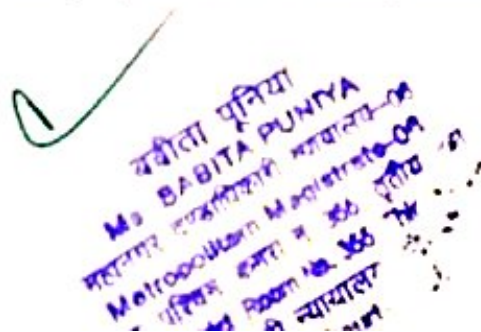 बबीता पूनिया
Ms BABITA PUNIYA
महानगर दण्डाधिकारी न्यायालय-09
Metropolitan Magistrate-09
पश्चिम कमरा नं 366 तृतीय
Room No. 366
न्यायालय